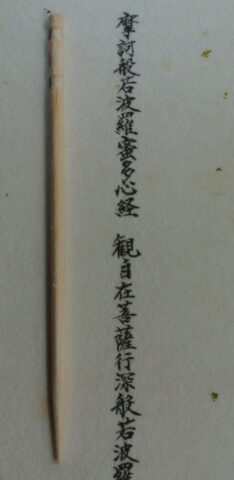 摩訶般若波羅蜜多心経 観自在菩薩行深般若波羅